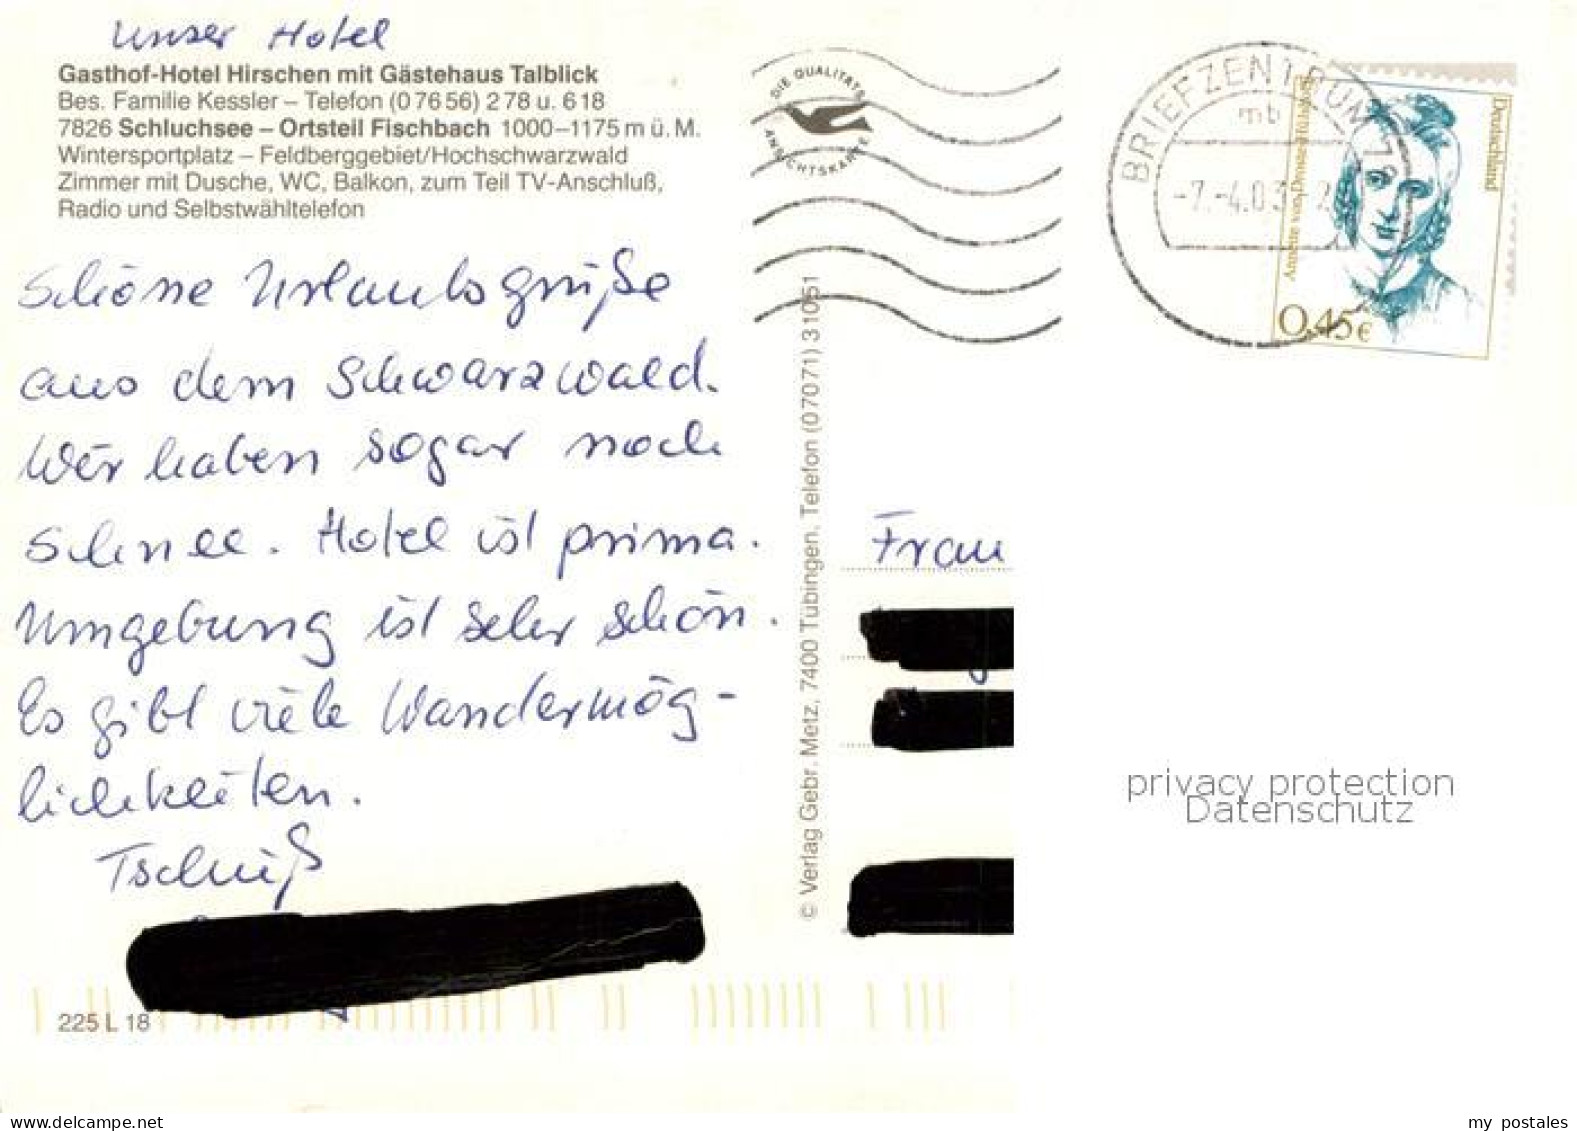 Unser Hotel
Gasthof-Hotel Hirschen mit Gästehaus Talblick
Bes. Familie Kessler – Telefon (0 76 56) 2 78 u. 6 18
7826 Schluchsee – Ortsteil Fischbach 1000–1175 m ü. M.
Wintersportplatz – Feldberggebiet/Hochschwarzwald
Zimmer mit Dusche, WC, Balkon, zum Teil TV-Anschluß,
Radio und Selbstwähltelefon
Schöne Urlaubsgrüße
aus dem Schwarzwald.
Wir haben sogar noch
Schnee. Hotel ist prima.
Umgebung ist sehr schön.
Es gibt viele Wandermög-
lichkeiten.
Tschüß
225 L 18
© Verlag Gebr. Metz, 7400 Tübingen, Telefon (0 70 71) 3 10 51
DIE QUALITÄTS
ANSICHTSKARTE
BRIEFZENTRUM 79
mb
-7.-4.03
Annette von Droste-Hülshoff
Deutschland
0,45 €
Frau
privacy protection
Datenschutz
www.delcampe.net
my postales